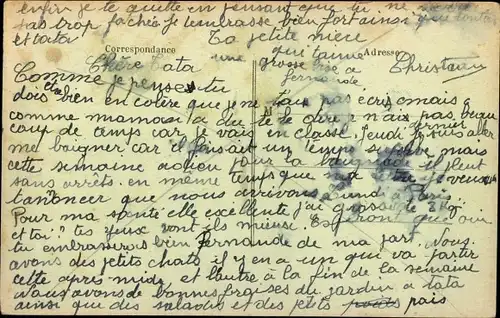 enfin je te quitte en pensant que tu ne
pas trop fachée je t'embrasse bien fort ainsi que tonton
et tata Ta petite nièce
Correspondance qui t'aime Adresse
Chère tata une grosse bise a Christian
Fernande
Comme je pense tu
dois être bien en colère que je ne t'ai pas écris mais
comme maman a du te le dire je n'ai pas beau
coup de temps car je vais en classe. Jeudi dernier nous aller
me baigner car il faisait un temps superbe mais
cette semaine adieu pour la baignade il pleut
sans arrêts. en même temps que ma lettre je veux
t'anoncer que nous arrivons lundi a Paris
Pour ma santé elle excellente j'ai grossi de 2 Kg
et toi? tes yeux vont ils mieux. que oui
tu embrasseras bien Fernande de ma part. Nous
avons des petits chats il y en a un qui va partir
cette après midi, et l'autre à la fin de la semaine
Nous avons de bonnes fraises du jardin a tata
ainsi que des salades et des petits pois